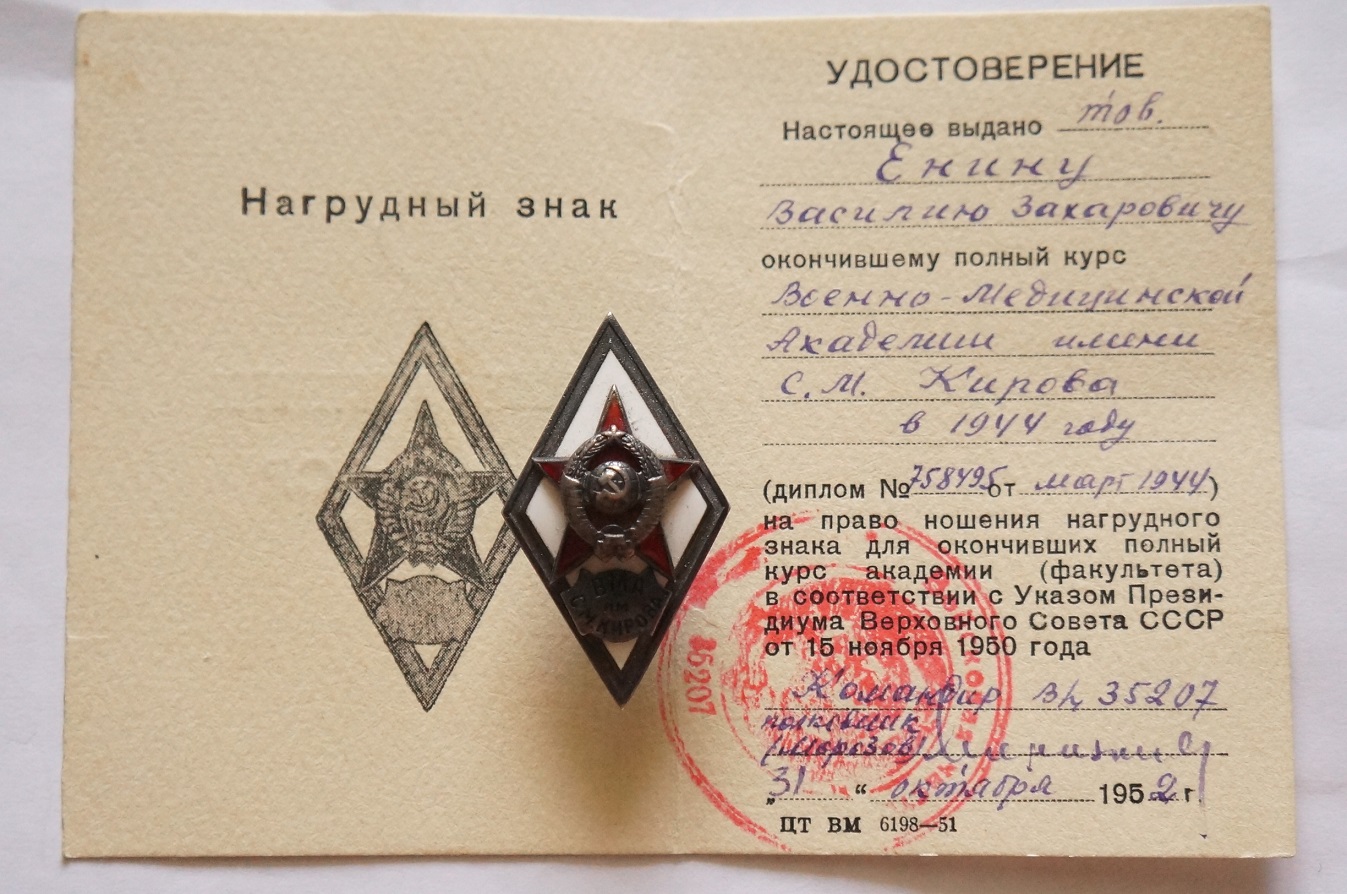 Нагрудный знак
ВМА
ИМ
С.М.КИРОВА
УДОСТОВЕРЕНИЕ
Настоящее выдано тов.
Енину
Василию Захаровичу
окончившему полный курс
Военно-Медицинской
Академии имени
С.М. Кирова
в 1944 году
(диплом № 758495 от март 1944)
на право ношения нагрудного
знака для окончивших полный
курс академии (факультета)
в соответствии с Указом Прези-
диума Верховного Совета СССР
от 15 ноября 1950 года
Командир в/ч 35207
полковник
(Морозов)
„31“ октября 1952 г.
ЦТ ВМ 6198—51
35207